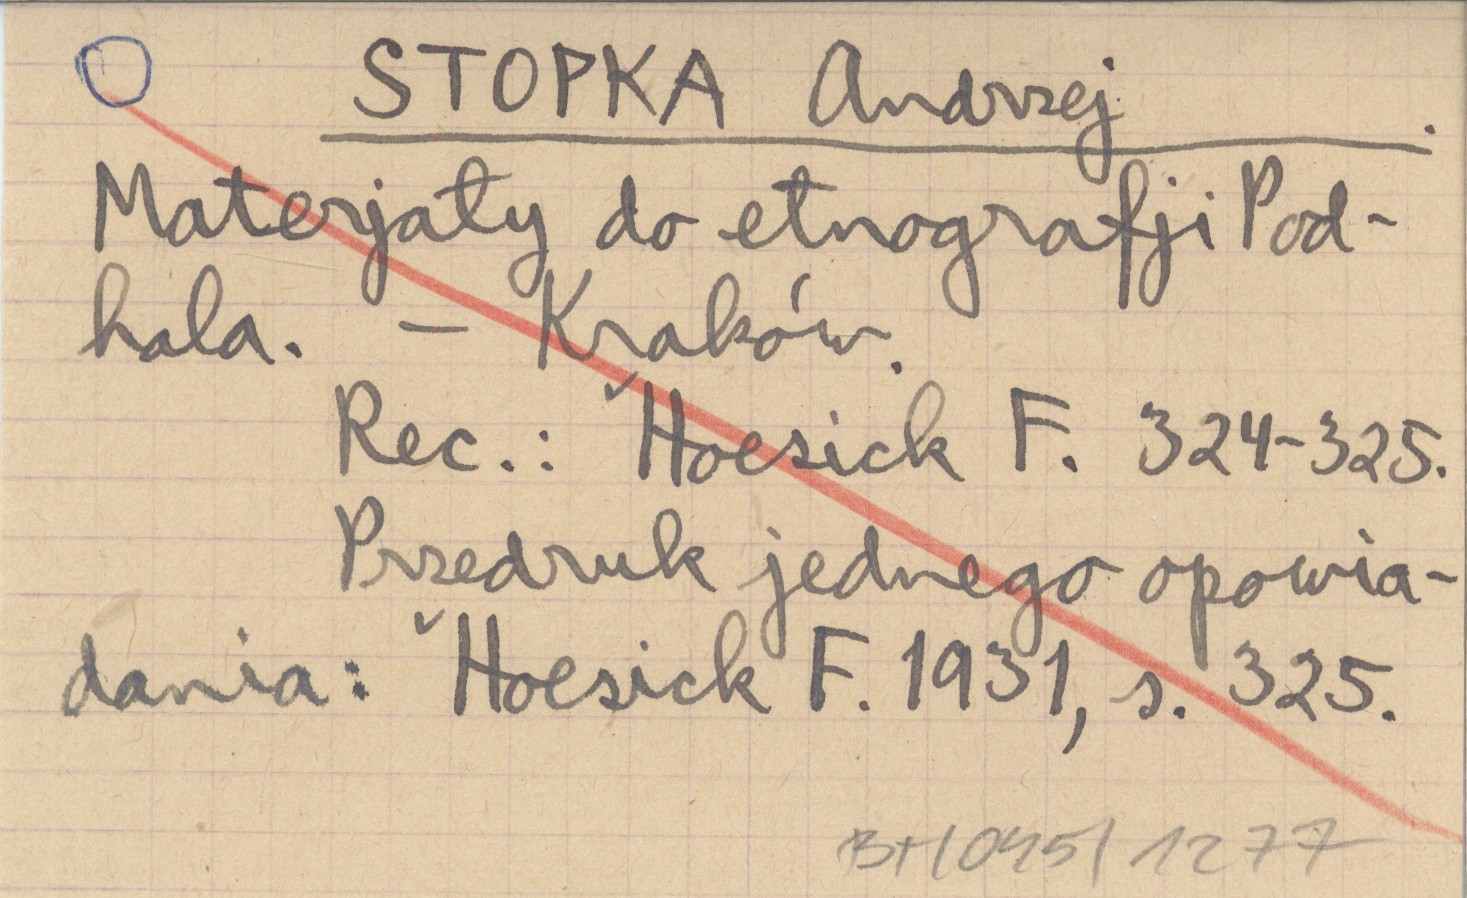 STOPKA Andrzej .
Materjały do etnografji Pod-
hala. – Kraków.
Rec.: Hoesick F. 324-325.
Przedruk jednego opowia-
dania: Hoesick F. 1931, s. 325.
1277